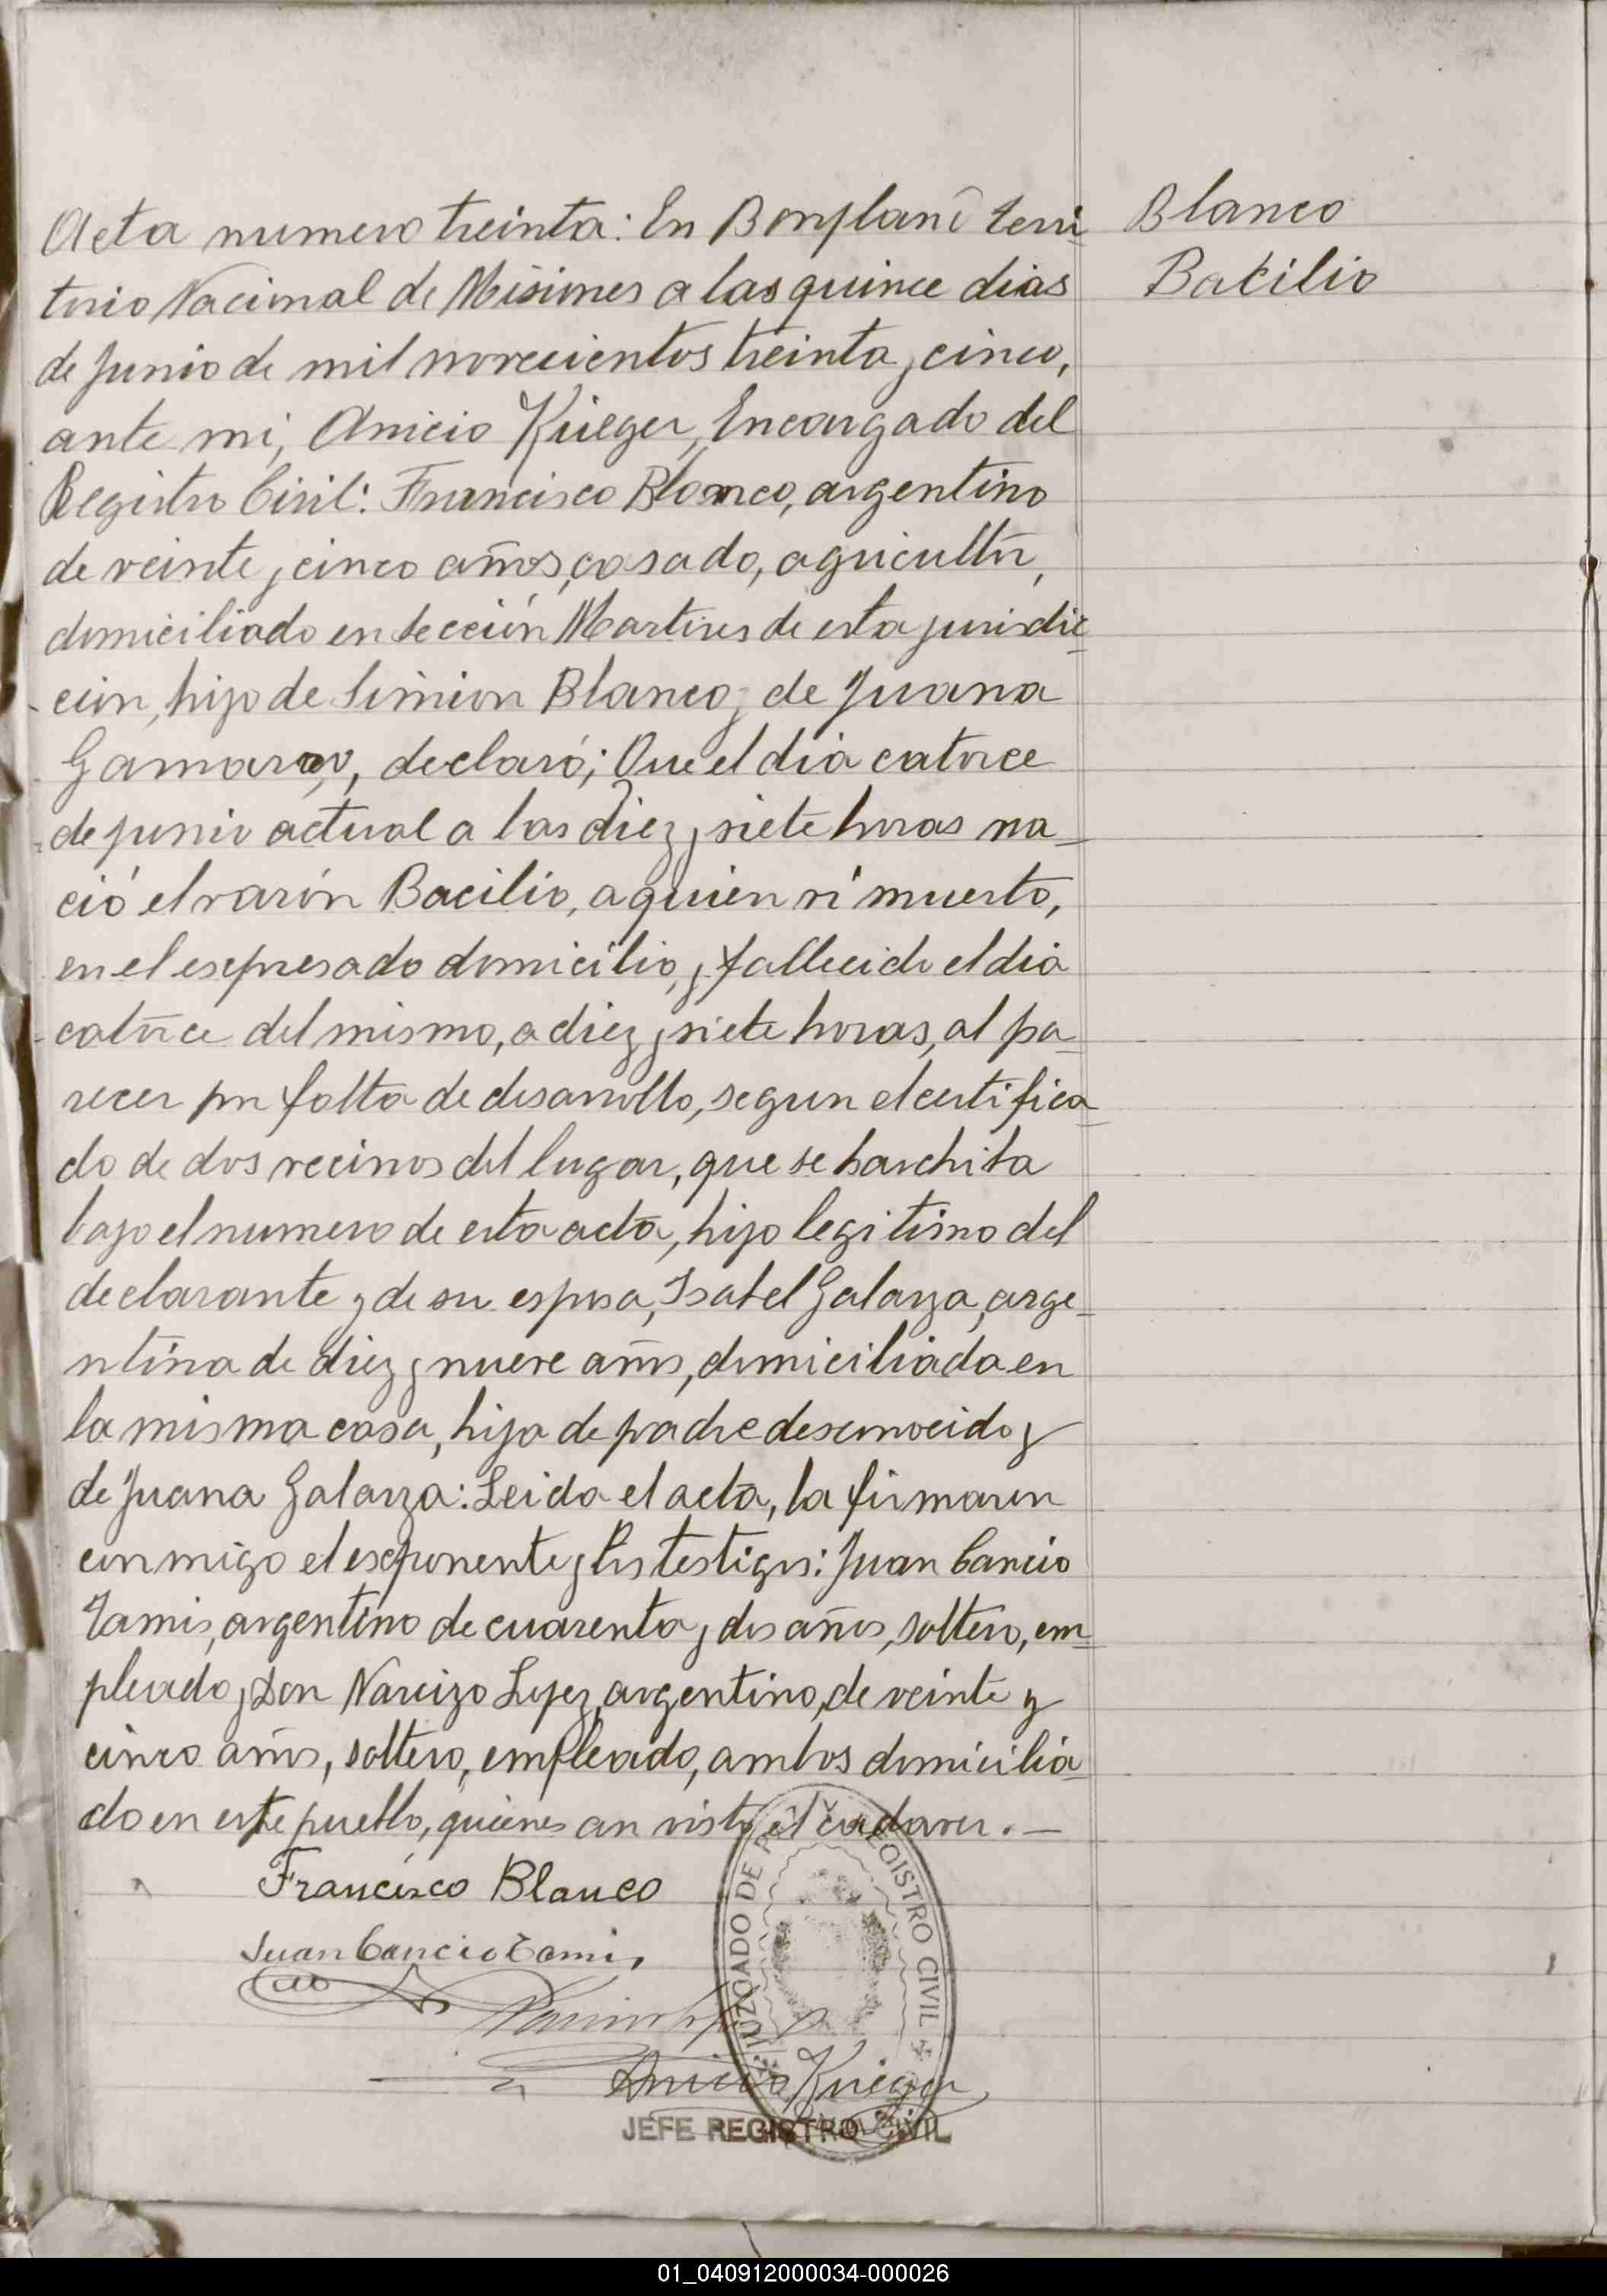 Acta numero treinta: En Bonpland terri
torio Nacional de Misiones a las quince dias
de Junio de mil novecientos treinta y cinco,
ante mi, Anicio Krieger, Encargado del
Registro Civil: Francisco Blanco, argentino
de veinte y cinco años, casado, agricultor,
domiciliado en Sección Martires de esta jurisdic
cion, hijo de Simion Blanco y de Juana
Gamarra, declaró; Que el dia catorce
de junio actual a las diez y siete horas na
ció el varón Bacilio, a quien vi muerto,
en el esepresado domicilio, y fallecido el dia
catorce del mismo, a diez y siete horas, al pa
recer por falta de desarrollo, segun el certifica
do de dos vecinos del lugar, que se harchiba
bajo el numero de esta acta, hijo legitimo del
declarante y de su esposa, Isabel Galarza, arge
ntina de diez y nueve años, domiciliada en
la misma casa, hija de padre desconocido y
de Juana Galarza: Leida el acta, la firmaron
conmigo el exponente y los testigos: Juan Cancio
Tamis, argentino de cuarenta y dos años, soltero, em
pleado, y Don Narcizo Lopez, argentino, de veinte y
cinco años, soltero, empleado, ambos domicilia
do en este pueblo, quienes an visto el cadaver.—
Blanco
Bacilio
Francisco Blanco
Juan Cancio Tamis
Anicio Krieger
JUZGADO DE PAZ Y REGISTRO CIVIL
JEFE REGISTRO CIVIL
01_040912000034-000026